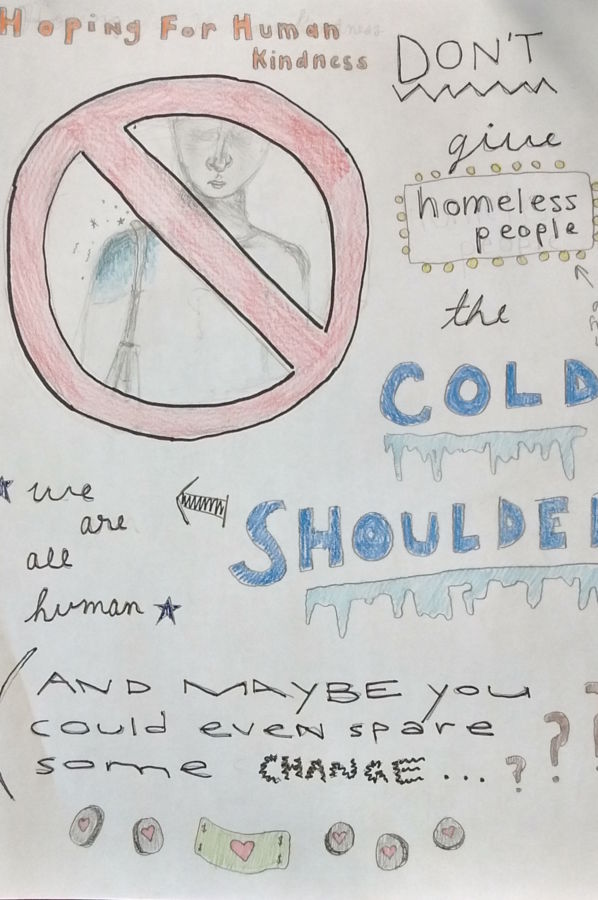 Hoping For Human
Kindness
DON'T
give
homeless
people
the
COLD
SHOULDE
we
are
all
human
(AND MAYBE you
could even spare
some CHANGE...???